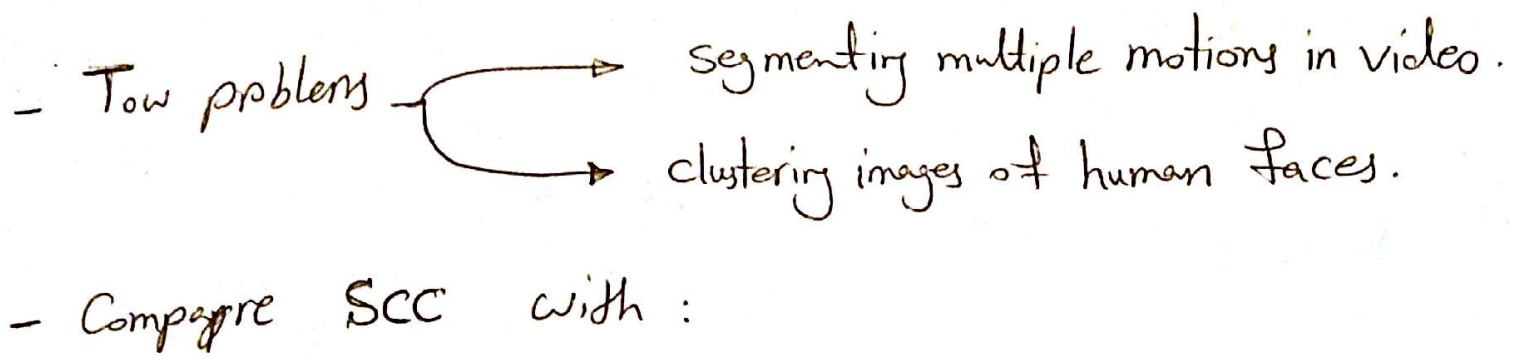 - Tow problems
segmenting multiple motions in video.
clustering images of human faces.
- Compare SCC with :